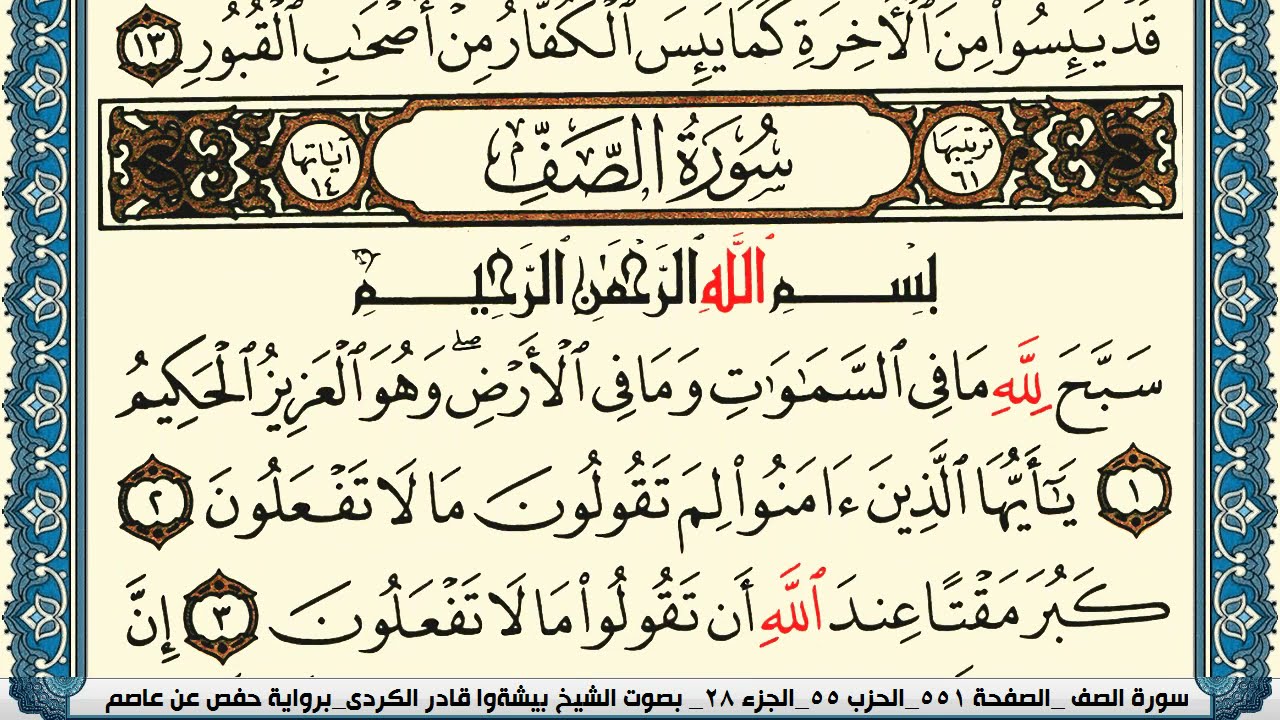 قَدْ يَئِسُوا۟ مِنَ ٱلْأَخِرَةِ كَمَا يَئِسَ ٱلْكُفَّارُ مِنْ أَصْحَٰبِ ٱلْقُبُورِ ١٣
ترتيبها ٦١ سُورَةُ الصَّفِّ آياتها ١٤
بِسْمِ ٱللَّهِ ٱلرَّحْمَٰنِ ٱلرَّحِيمِ
سَبَّحَ لِلَّهِ مَا فِى ٱلسَّمَٰوَٰتِ وَمَا فِى ٱلْأَرْضِ ۖ وَهُوَ ٱلْعَزِيزُ ٱلْحَكِيمُ
١ يَٰٓأَيُّهَا ٱلَّذِينَ ءَامَنُوا۟ لِمَ تَقُولُونَ مَا لَا تَفْعَلُونَ ٢
كَبُرَ مَقْتًا عِندَ ٱللَّهِ أَن تَقُولُوا۟ مَا لَا تَفْعَلُونَ ٣ إِنَّ
سورة الصف _الصفحة ٥٥١_الحزب ٥٥_الجزء ٢٨_ بصوت الشيخ بيشةوا قادر الكردى_برواية حفص عن عاصم